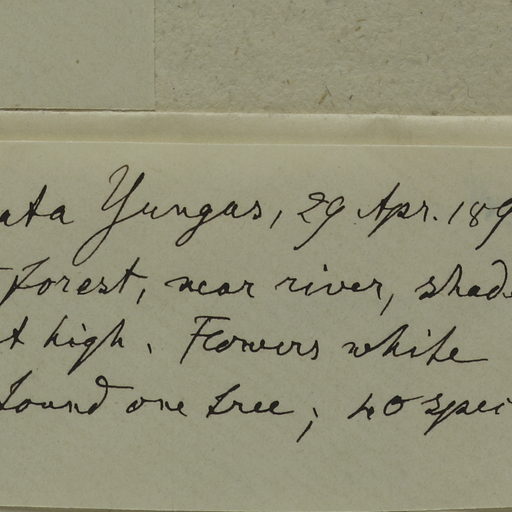 ata Yungas, 29 Apr. 189
forest, near river, shade
t high. Flowers white
found one tree; 40 speci